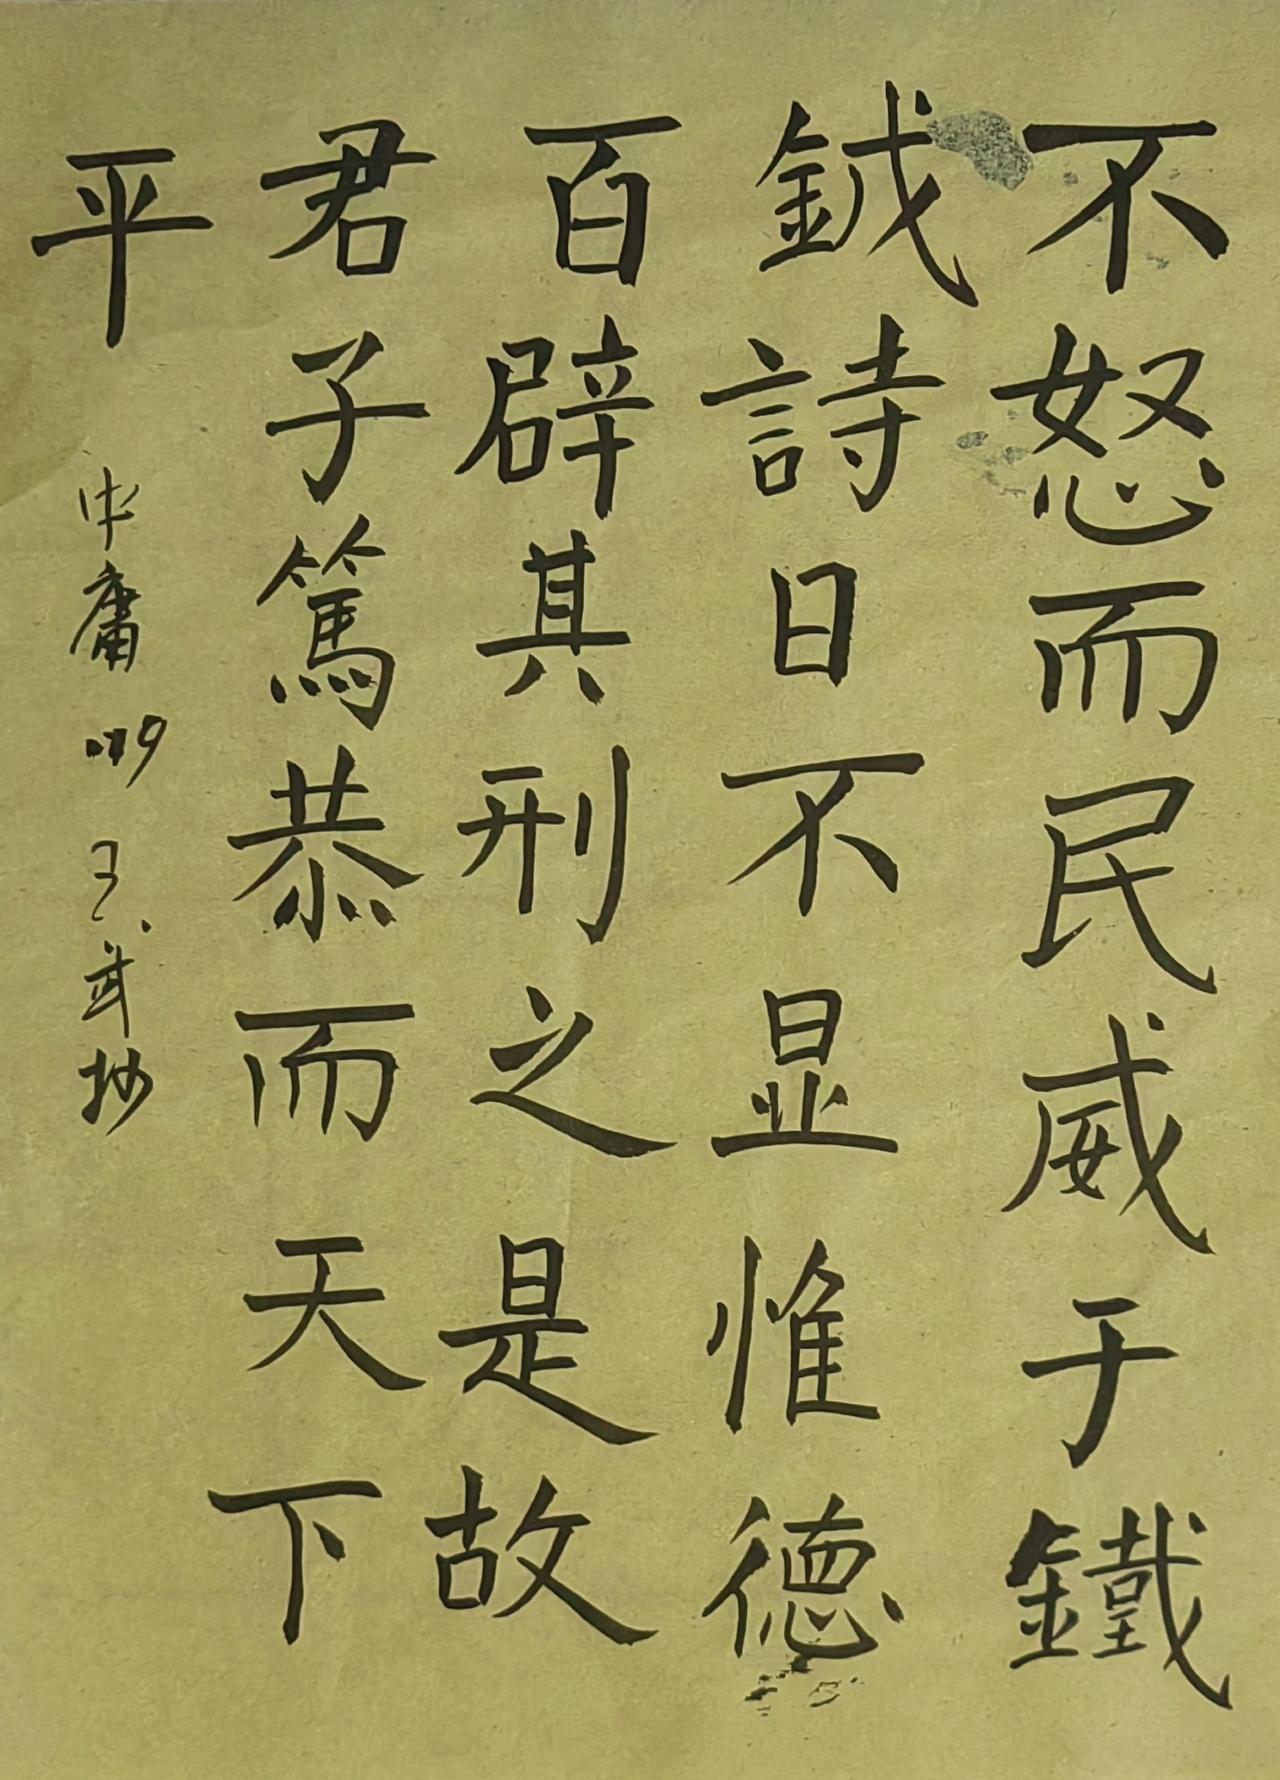 不怒而民威于鐵
鉞詩曰不显惟德
百辟其刑之是故
君子篤恭而天下
平
中庸 武抄